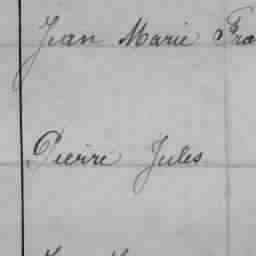 Jean Marie Fra
Pierre Jules